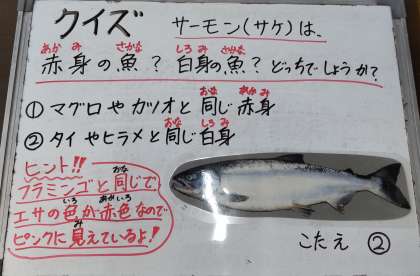 クイズ サーモン(サケ)は、
赤身の魚？白身の魚？どっちでしょうか？
あかみ さかな しろみ さかな
① マグロやカツオと同じ赤身
おな あかみ
② タイやヒラメと同じ白身
おな しろみ
ヒント!!
フラミンゴと同じで
おな
エサの色が赤色なので
いろ あかいろ
ピンクに見えているよ!
み
こたえ ②